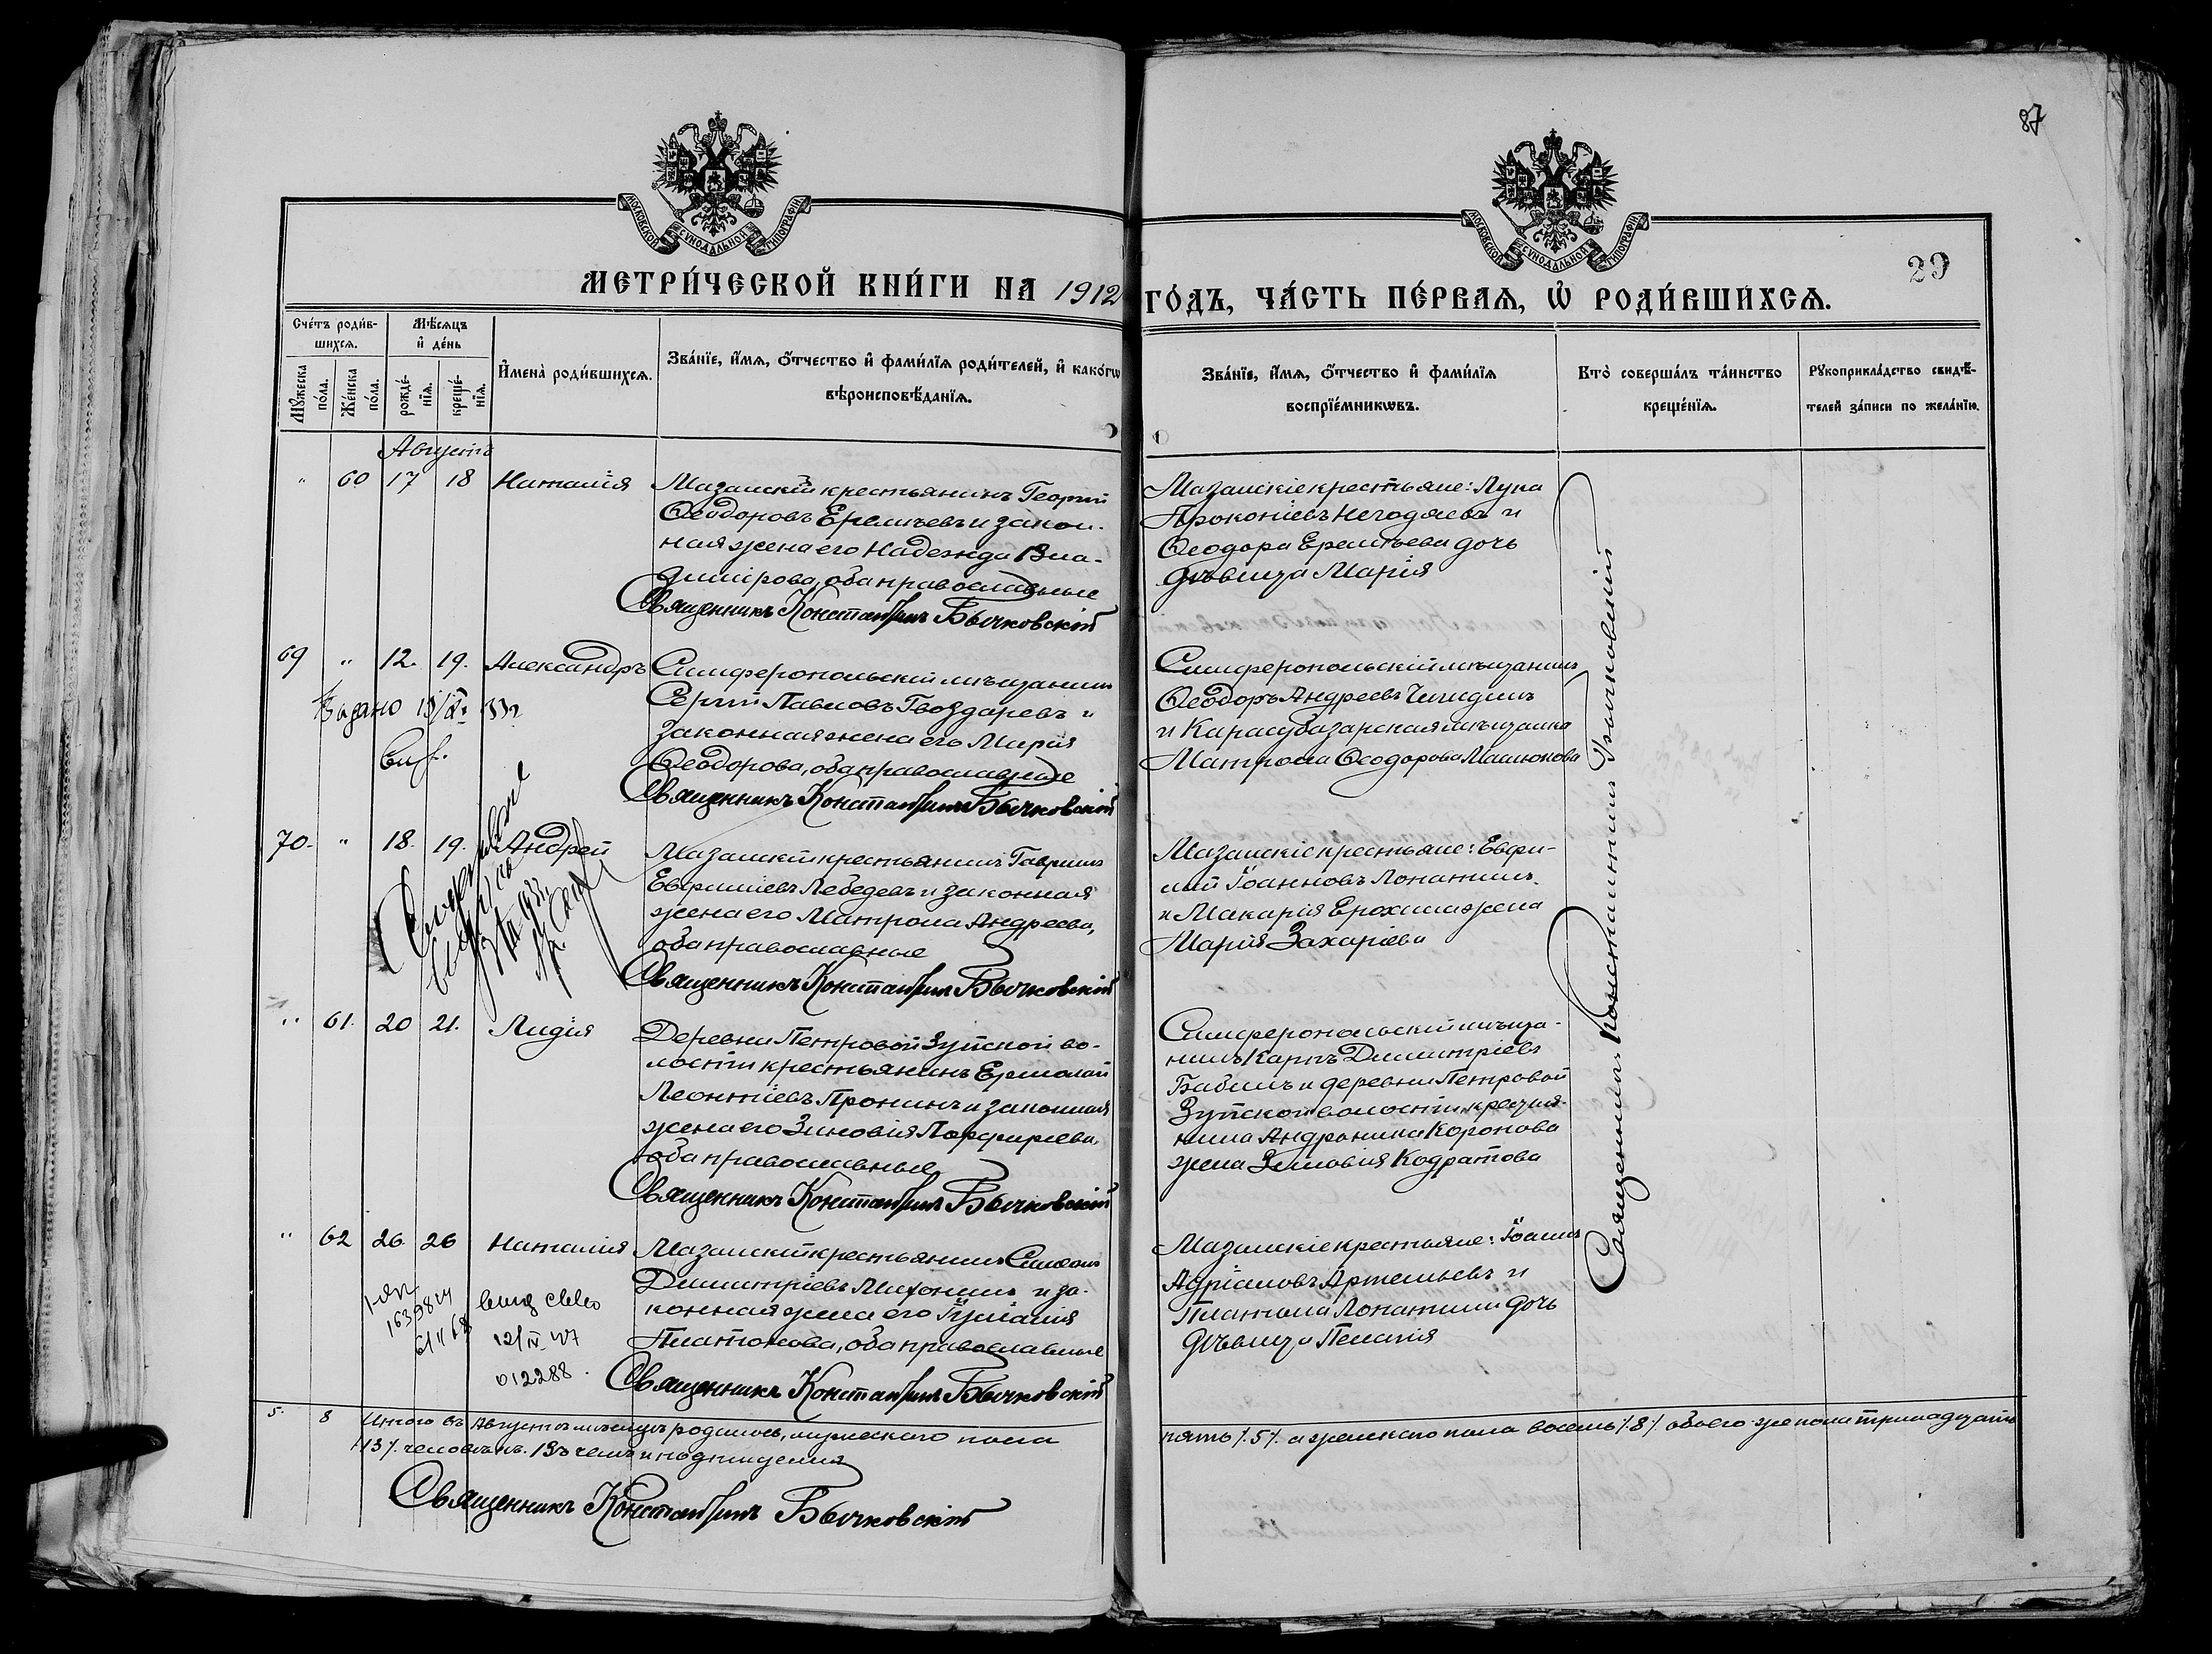 87
МОСКОВСКОЙ СѴНОДАЛЬНОЙ ТИПОГРАФІИ
МОСКОВСКОЙ СѴНОДАЛЬНОЙ ТИПОГРАФІИ
29
МЕТРИ́ЧЕСКОЙ КНИ́ГИ НА 1912 ГО́ДЪ, ЧА́СТЬ ПЕ́РВАЯ, Ѡ РОДИ́ВШИХСЯ.
Сче́тъ роди́в-
шихся.
Мѣ́сяцъ
и де́нь
Мꙋ́жеска
по́ла.
Же́нска
по́ла.
рожде́-
нїя.
креще́-
нїя.
Имена̀ роди́вшихся.
Зва́нїе, и́мя, ѻ́тчество и фами́лїя роди́телей, и како́гѡ
вѣроисповѣ́данїя.
Зва́нїе, и́мя, ѻ́тчество и фами́лїя
воспрїе́мникѡвъ.
Кто̀ соверша́лъ та́инство
креще́нїя.
Рꙋкоприкла́дство свидѣ́-
телей за́писи по жела́нїю.
Августъ
" 60 17 18 Наталія
Мазанскій крестьянинъ Георгій
Ѳеодоровъ Еремѣевъ и закон-
ная жена его Надежда Вла-
димірова, оба православные
Священникъ Константинъ Бычковскій
Мазанскіе крестьяне: Лука
Прокопіевъ Негодяевъ и
Ѳеодора Еремѣева дочь
дѣвица Марія
69 " 12. 19. Александръ
Симферопольскій мѣщанинъ
Сергій Павловъ Гвоздаревъ и
законная жена его Марія
Ѳеодорова, оба православные
Священникъ Константинъ Бычковскій
Симферопольскій мѣщанинъ
Ѳеодоръ Андреевъ
и Карасубазарская мѣщанка
Матрона Ѳеодорова
70. " 18. 19. Андрей
Мазанскій крестьянинъ Гавріилъ
Евфиміевъ Лебедевъ и законная
жена его Матрона Андреева,
оба православные
Священникъ Константинъ Бычковскій
Мазанскіе крестьяне: Евфи-
мій Іоанновъ Лопатинъ
и Макарія Ерохина жена
Марія Захаріева
" 61. 20 21. Лидія
Деревни Петровой Зуйской во-
лости крестьянинъ Ермолай
Леонтіевъ Пронинъ и законная
жена его Зиновія Порфиріева,
оба православные
Священникъ Константинъ Бычковскій
Симферопольскій мѣща-
нинъ Карпъ Димитріевъ
Бабинъ и деревни Петровой
Зуйской волости крестья-
нина Андроника Коронова
жена Зиновія Кодратова
" 62 26. 26 Наталія
Мазанскій крестьянинъ Симеонъ
Димитріевъ и за-
конная жена его Іуліанія
Платонова, оба православные
Священникъ Константинъ Бычковскій
Мазанскіе крестьяне: Іоаннъ
Адріановъ Артемьевъ и
Платона Лопатина дочь
дѣвица Пелагія
012288
Священникъ Константинъ Бычковскій
5. 8 Итого въ Августѣ мѣсяцѣ родилось, мужеского пола пять /.5/. а женскаго пола восемь /.8/. обоего же пола тринадцать
/13/. человѣкъ. Въ чемъ и подпишемся
Священникъ Константинъ Бычковскій